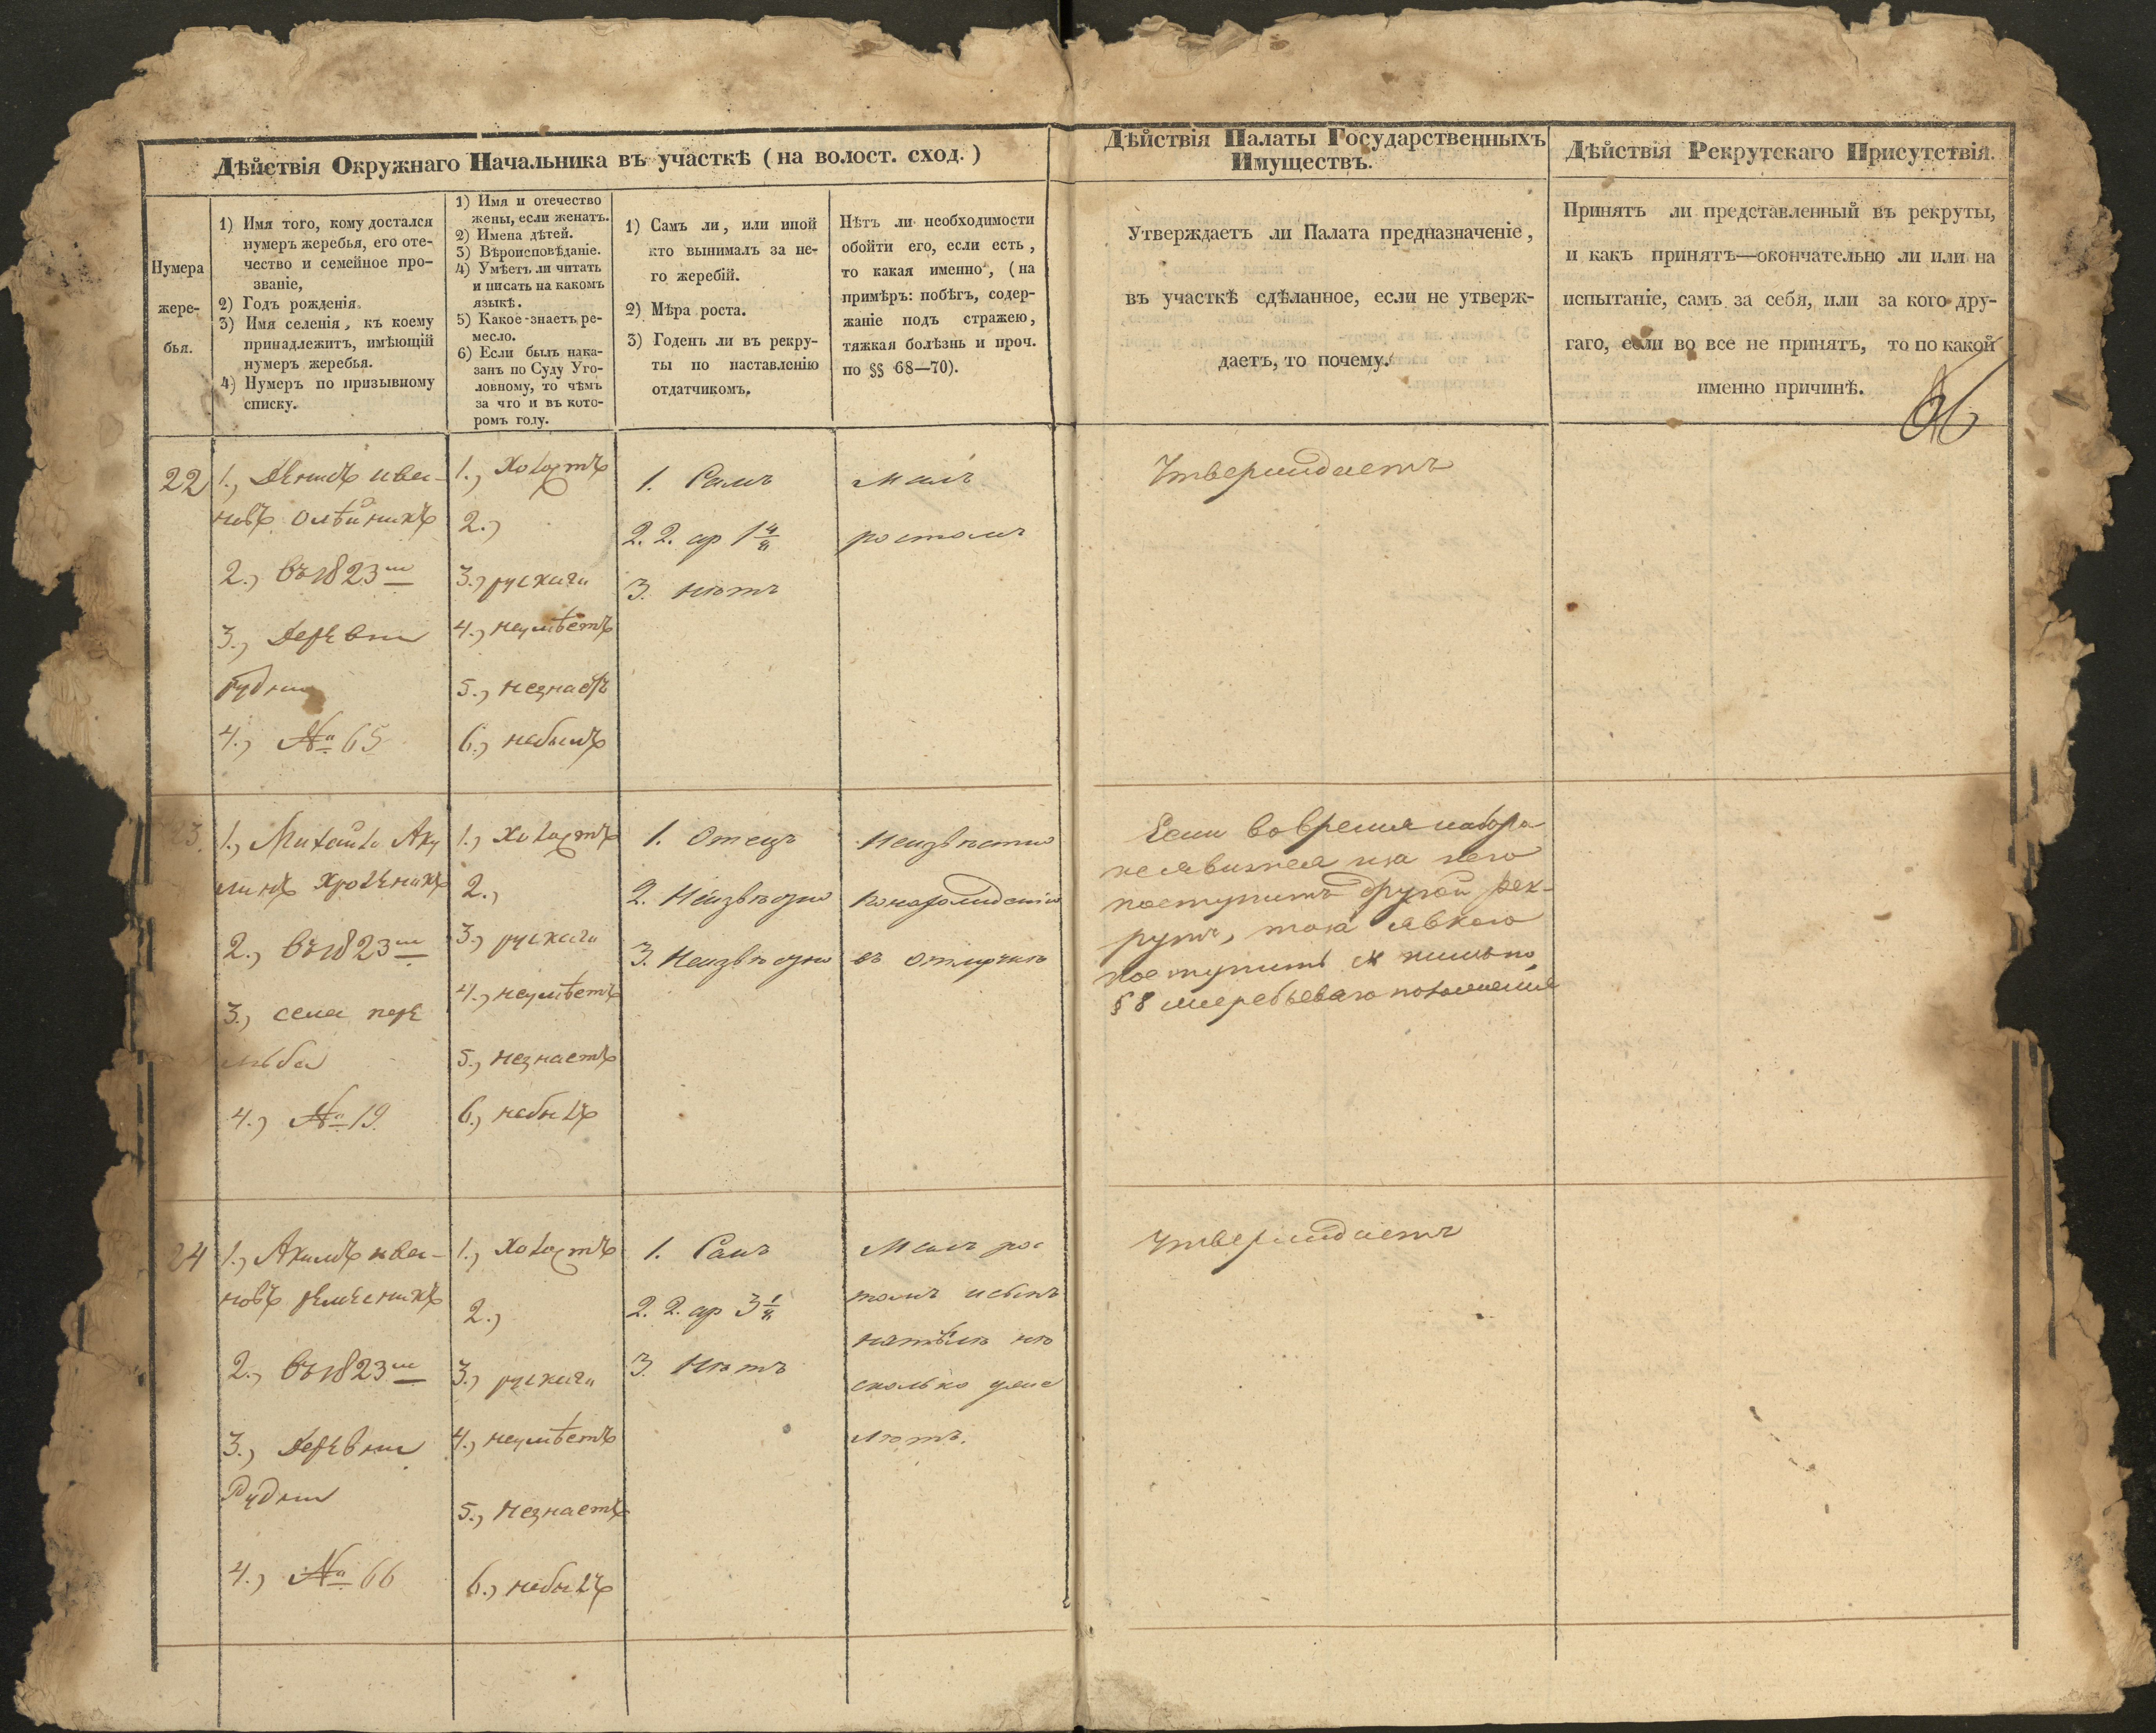 Дѣйствія Окружнаго Начальника въ участкѣ (на волост. сход.)
Нумера
жере-
бья.
1) Имя того, кому достался
нумеръ жеребья, его оте-
чество и семейное про-
званіе,
2) Годъ рожденія.
3) Имя селенія, къ коему
принадлежитъ, имѣющій
нумеръ жеребья.
4) Нумеръ по призывному
списку.
1) Имя и отечество
жены, если женатъ.
2) Имена дѣтей.
3) Вѣроисповѣданіе.
4) Умѣетъ ли читать
и писать на какомъ
языкѣ.
5) Какое знаетъ ре-
месло.
6) Если былъ нака-
занъ по Суду Уго-
ловному, то чѣмъ
за что и въ кото-
ромъ году.
1) Самъ ли, или иной
кто вынималъ за не-
го жеребій.
2) Мѣра роста.
3) Годенъ ли въ рекру-
ты по наставленію
отдатчикомъ.
Нѣтъ ли необходимости
обойти его, если есть,
то какая именно, (на
примѣръ: побѣгъ, содер-
жаніе подъ стражею,
тяжкая болѣзнь и проч.
по §§ 68—70).
Дѣйствія Палаты Государственныхъ
Имуществъ.
Утверждаетъ ли Палата предназначеніе,
въ участкѣ сдѣланное, если не утверж-
даетъ, то почему.
Дѣйствія Рекрутскаго Присутствія.
Принятъ ли представленный въ рекруты,
и какъ принятъ—окончательно ли или на
испытаніе, самъ за себя, или за кого дру-
гаго, если во все не принятъ, то по какой
именно причинѣ.
22
1., Денисъ ива-
новъ олѣйникъ
2., въ 1823 м
3., Деревни
рудни
4., № 65
1., Холостъ
2.,
3., рускаги
4., неумѣетъ
5., незнаетъ
6., небылъ
1. Самъ
2. 2. ар 1 4/8
3. нѣтъ
малъ
ростомъ
Утверждаетъ
23.
1., Михайло Аку
линъ
2., въ 1823 м
3., села пере
люба
4., № 19.
1., Холостъ
2.,
3., рускаги
4., неумѣетъ
5., незнаетъ
6., небылъ
1. Отецъ
2. Неизвѣстно
3. Неизвѣстно
Неизвѣстно
понахожденію
въ отлучкѣ
Если вовремя набора
неявится иза него
поступитъ другой рек-
рутъ, тоза явкою
поступить съ нимъ по
§ 8 жеребьеваго положенія
24
1., Акимъ ива-
новъ ремесникъ
2., въ 1823 м
3., Деревни
Рудни
4., № 66
1., Холостъ
2.,
3., рускаги
4., неумѣетъ
5., Незнаетъ
6., небылъ
1. Самъ
2. 2. ар 3 1/8
3. Нѣтъ
Малъ рос
томъ исыпь
натѣлѣ нѣ
сколько
Утверждаетъ